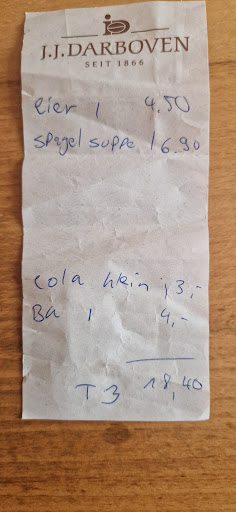 J.J.DARBOVEN
SEIT 1866
Eier 1 4.50
Spagel suppe 1 6.90
Cola klein 1 3,-
Ba 1 4,-
T 3 18,40